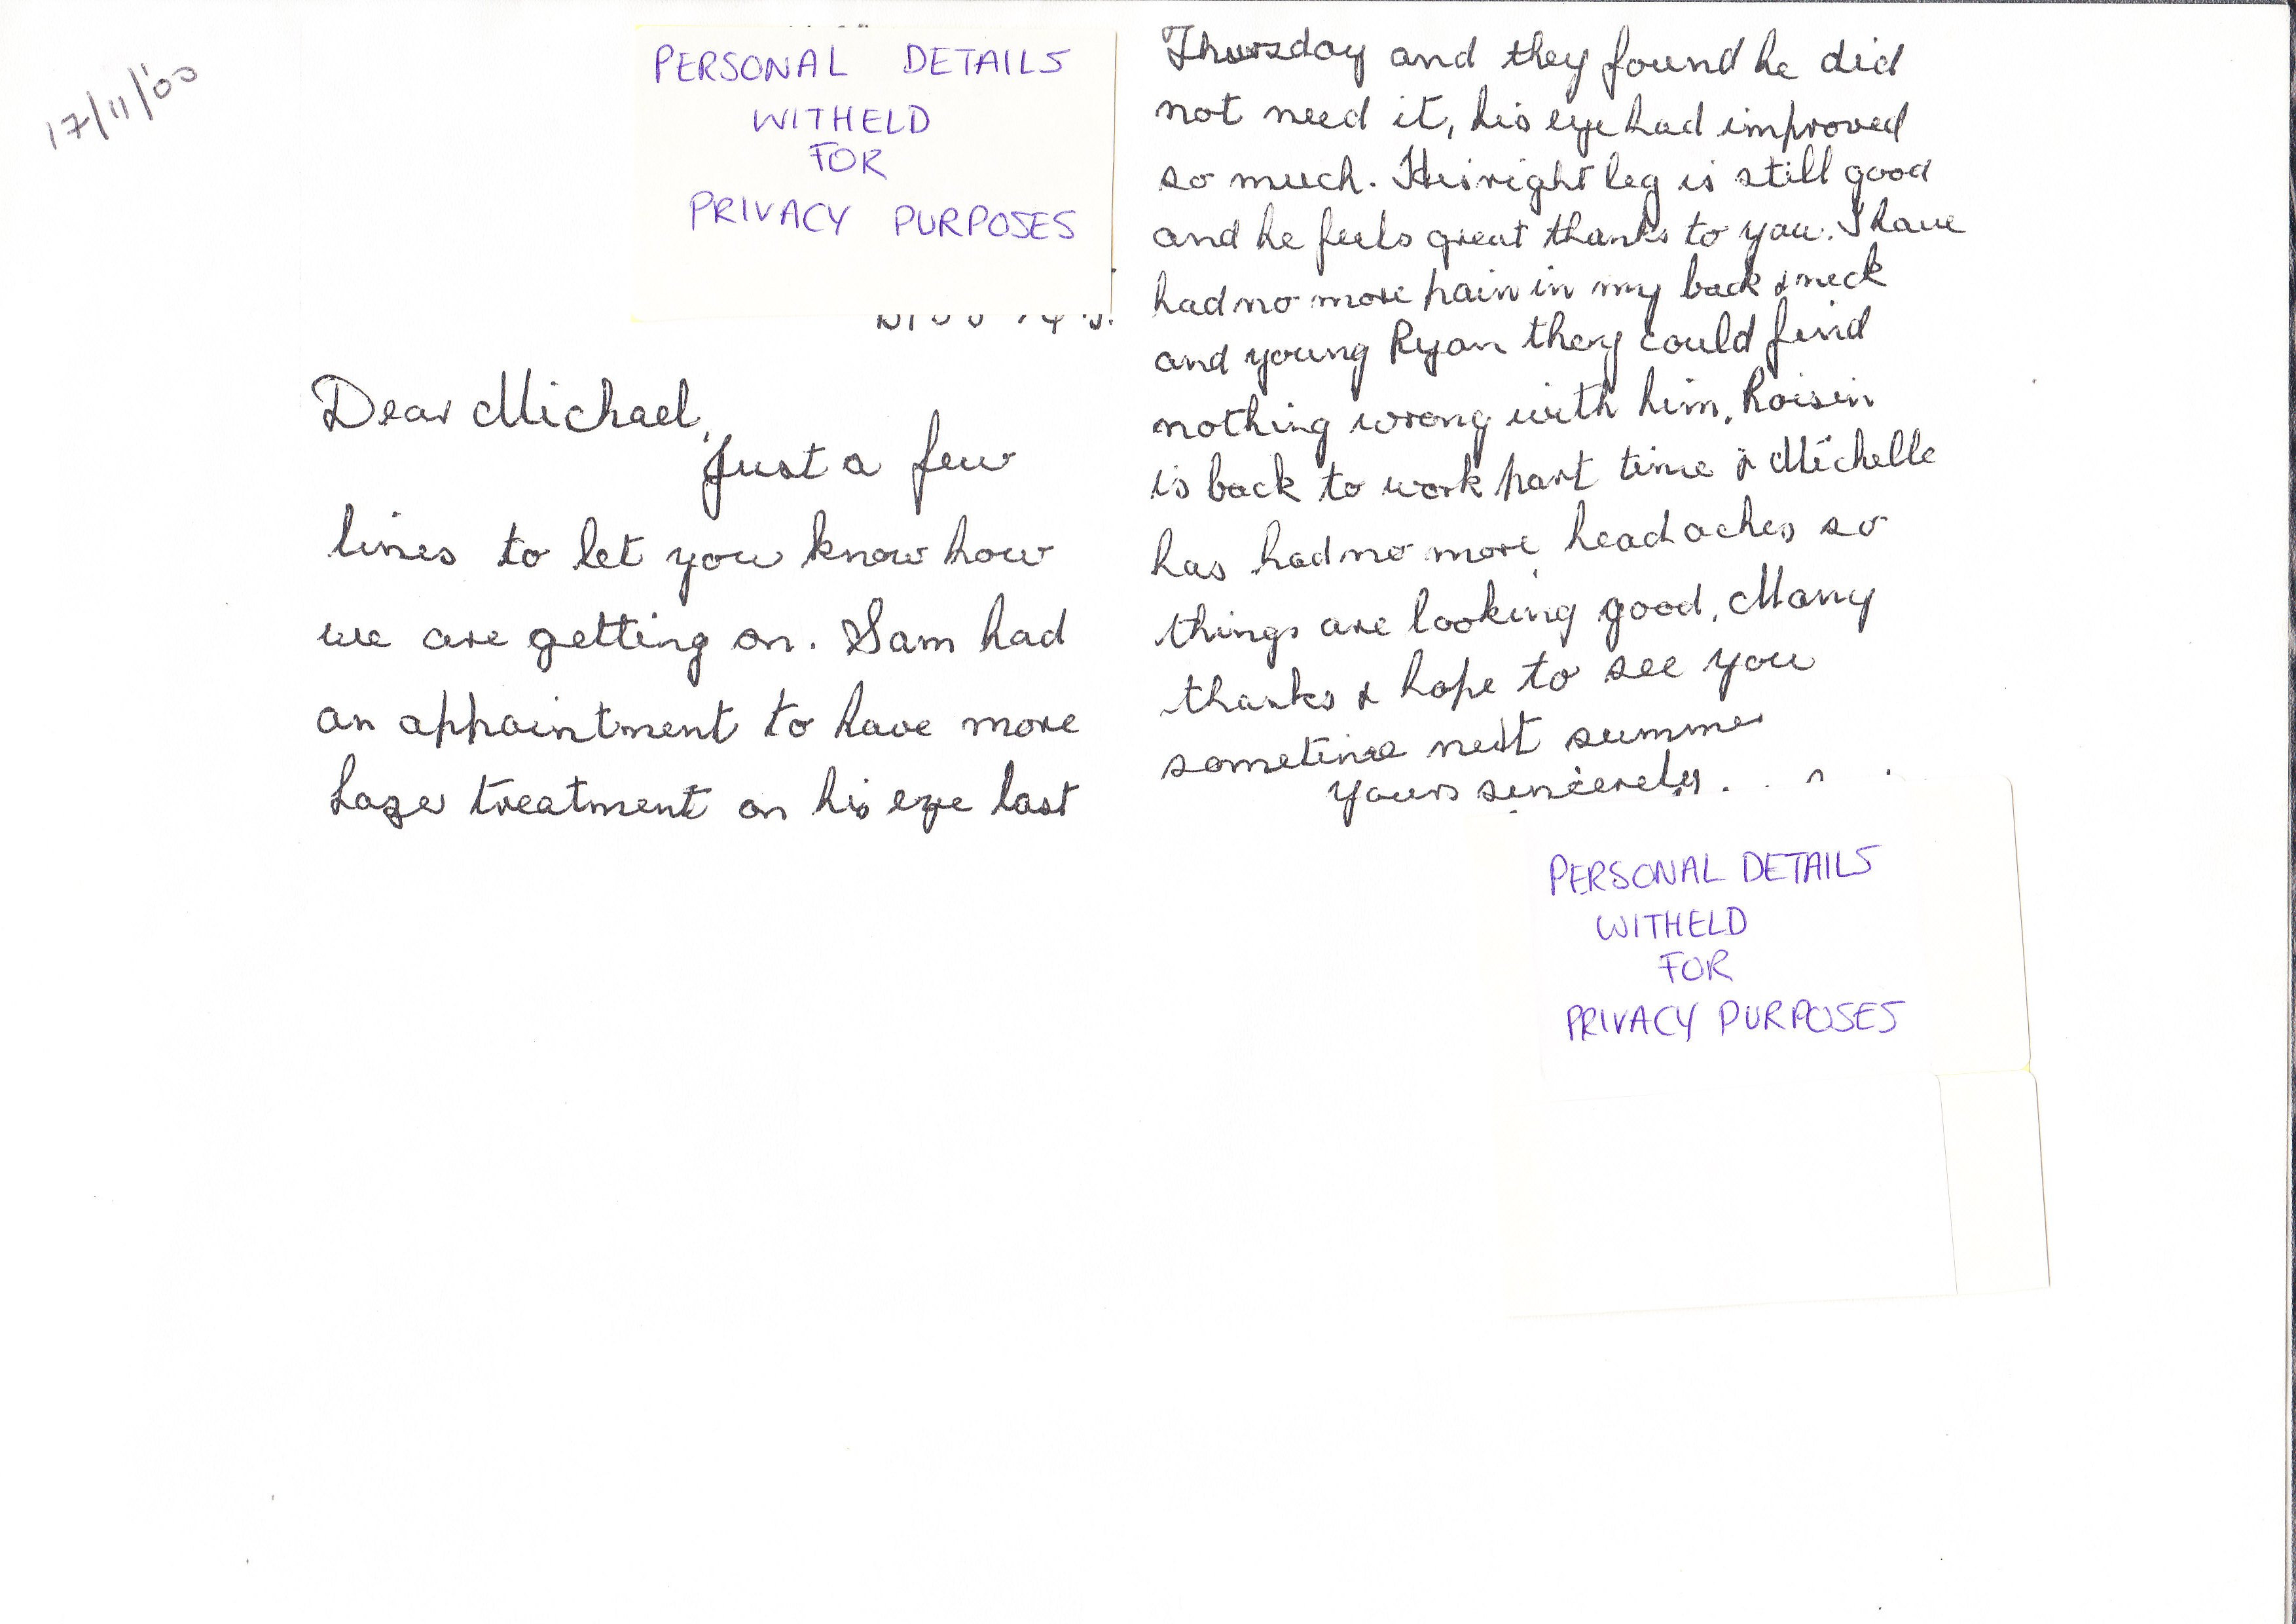 17/11/'00
PERSONAL DETAILS
WITHELD
FOR
PRIVACY PURPOSES
Dear Michael,
Just a few
lines to let you know how
we are getting on. Sam had
an appointment to have more
lazer treatment on his eye last
Thursday and they found he did
not need it, his eye had improved
so much. His right leg is still good
and he feels great thanks to you. I have
had no more pain in my back & neck
and young Ryan they could find
nothing wrong with him, Roisin
is back to work part time & Michelle
has had no more headaches so
things are looking good, Many
thanks & hope to see you
sometime next summer
yours sincerely
PERSONAL DETAILS
WITHELD
FOR
PRIVACY PURPOSES